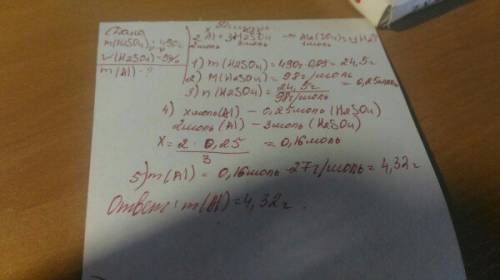 m(H2SO4) = 490г
m(Al) - ?
2Al + 3H2SO4 → Al2(SO4)3 + 3H2
2моль 3моль 1моль
1) m(H2SO4) = 490г · 0,05 = 24,5г
2) M(H2SO4) = 98г/моль
3) n(H2SO4) = 24,5г / 98г/моль = 0,25моль
4) x моль (Al) - 0,25моль (H2SO4)
2моль (Al) - 3моль (H2SO4)
x = 2 · 0,25 / 3 = 0,16моль
5) m(Al) = 0,16моль · 27г/моль = 4,32г
Ответ: m(Al) = 4,32г.